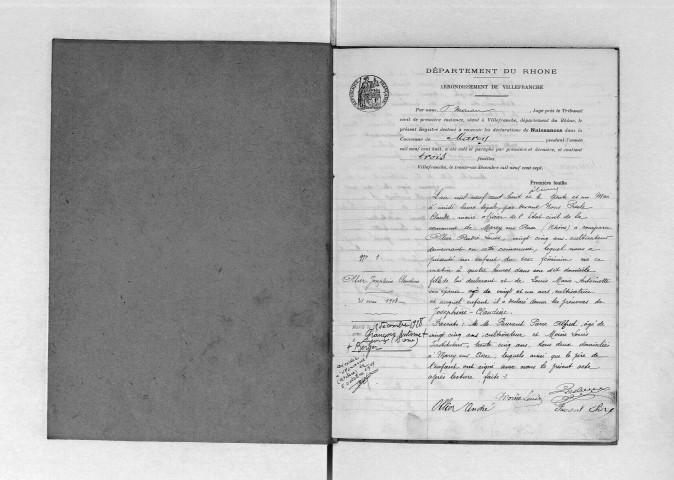 DÉPARTEMENT DU RHONE
ARRONDISSEMENT DE VILLEFRANCHE
Par nous, Juge près le Tribunal
civil de première instance, séant à Villefranche, département du Rhône, le
présent Registre destiné à recevoir les déclarations de Naissances dans la
Commune de Marcy pendant l'année
mil neuf cent huit, a été coté et paraphé par première et dernière, et contient
trois feuilles
Villefranche, le trente-un décembre mil neuf cent sept.
Première feuille
L'an mil neuf cent huit et le trente et un Mai
à midi heure légale, par devant Nous
Claude, maire officier de l'Etat civil de la
commune de Marcy sur Anse (Rhône) a comparu
Ollier André Louis, vingt cinq ans, cultivateur
demeurant en cette commune, lequel nous a
présenté un enfant du sexe féminin né ce
matin à quatre heures dans son dit domicile
fille de lui déclarant et de Marie Antoinette
son épouse agée de vingt et un ans, cultivatrice
et auquel enfant il a déclaré donner les prénoms de
Joséphine-Claudine.
Présents : M. M. Pierre Alfred, âgé de
vingt cinq ans cultivateur et Moine Louis
Instituteur, trente cinq ans, tous deux domiciliés
à Marcy sur Anse, lesquels ainsi que le père de
l'enfant ont signé avec nous le présent acte
après lecture faite :
N° 1
Ollier Joséphine Claudine
31 mai 1908
décembre 1928
François Antoine
Berger
Ollier André
Moine Louis